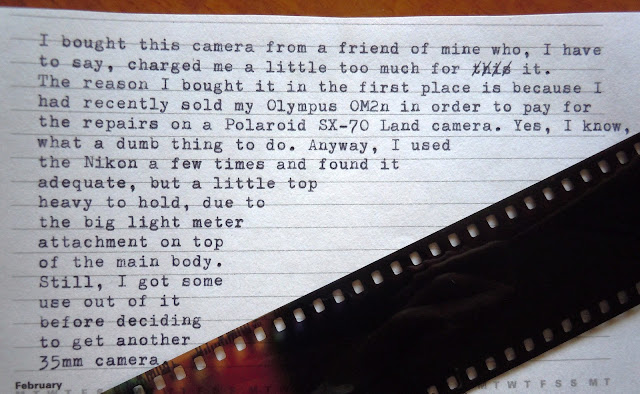 I bought this camera from a friend of mine who, I have
to say, charged me a little too much for it.
The reason I bought it in the first place is because I
had recently sold my Olympus OM2n in order to pay for
the repairs on a Polaroid SX-70 Land camera. Yes, I know,
what a dumb thing to do. Anyway, I used
the Nikon a few times and found it
adequate, but a little top
heavy to hold, due to
the big light meter
attachment on top
of the main body.
Still, I got some
use out of it
before deciding
to get another
35mm camera.
February
M T W T F S S M T W T F S S M T